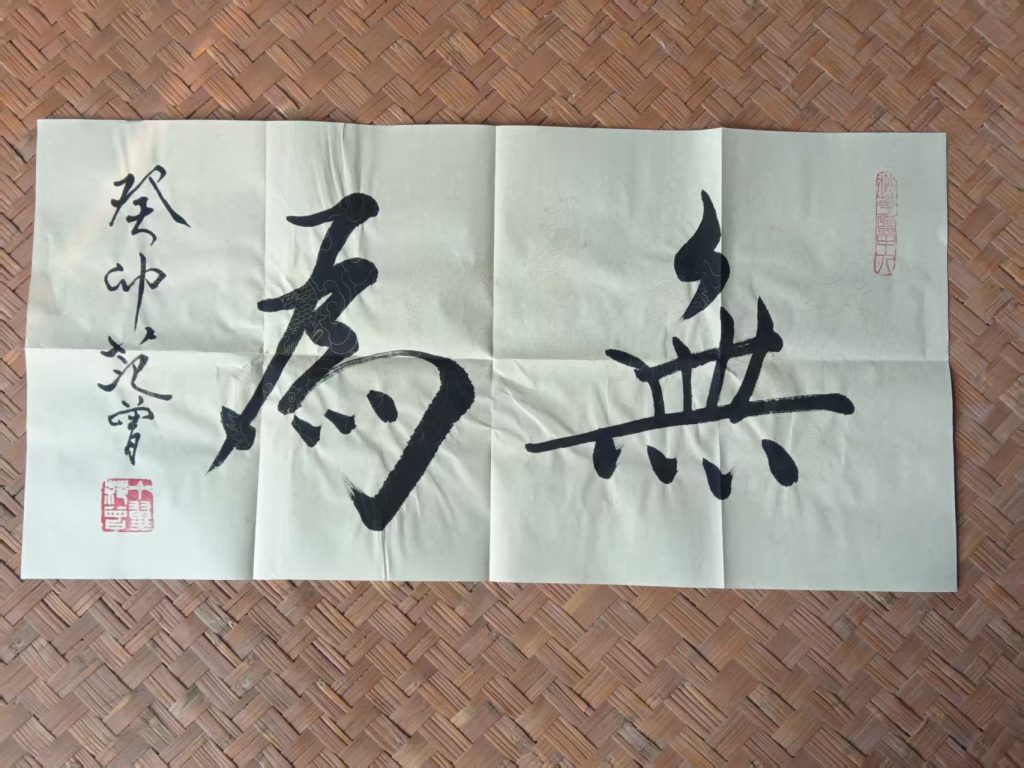 無為
癸卯 范曾